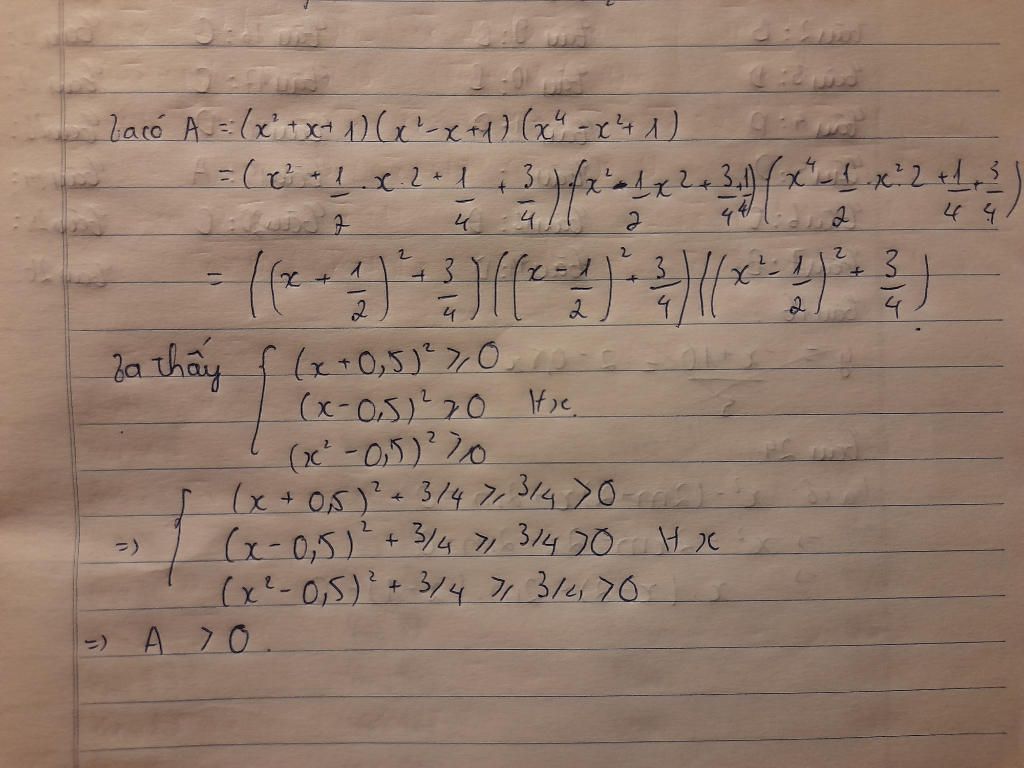 Ta có A = (x² + x + 1)(x² - x + 1)(x⁴ - x² + 1)
= (x² + 1/2 . x . 2 + 1/4 + 3/4)(x² - 1/2 x 2 + 3/4 + 1/4)(x⁴ - 1/2 . x² . 2 + 1/4 + 3/4)
= ((x + 1/2)² + 3/4)((x - 1/2)² + 3/4)((x² - 1/2)² + 3/4).
Ta thấy { (x + 0,5)² ≥ 0
(x - 0,5)² ≥ 0 ∀x.
(x² - 0,5)² ≥ 0
=> { (x + 0,5)² + 3/4 ≥ 3/4 > 0
(x - 0,5)² + 3/4 ≥ 3/4 > 0 ∀x
(x² - 0,5)² + 3/4 ≥ 3/4 > 0
=> A > 0.